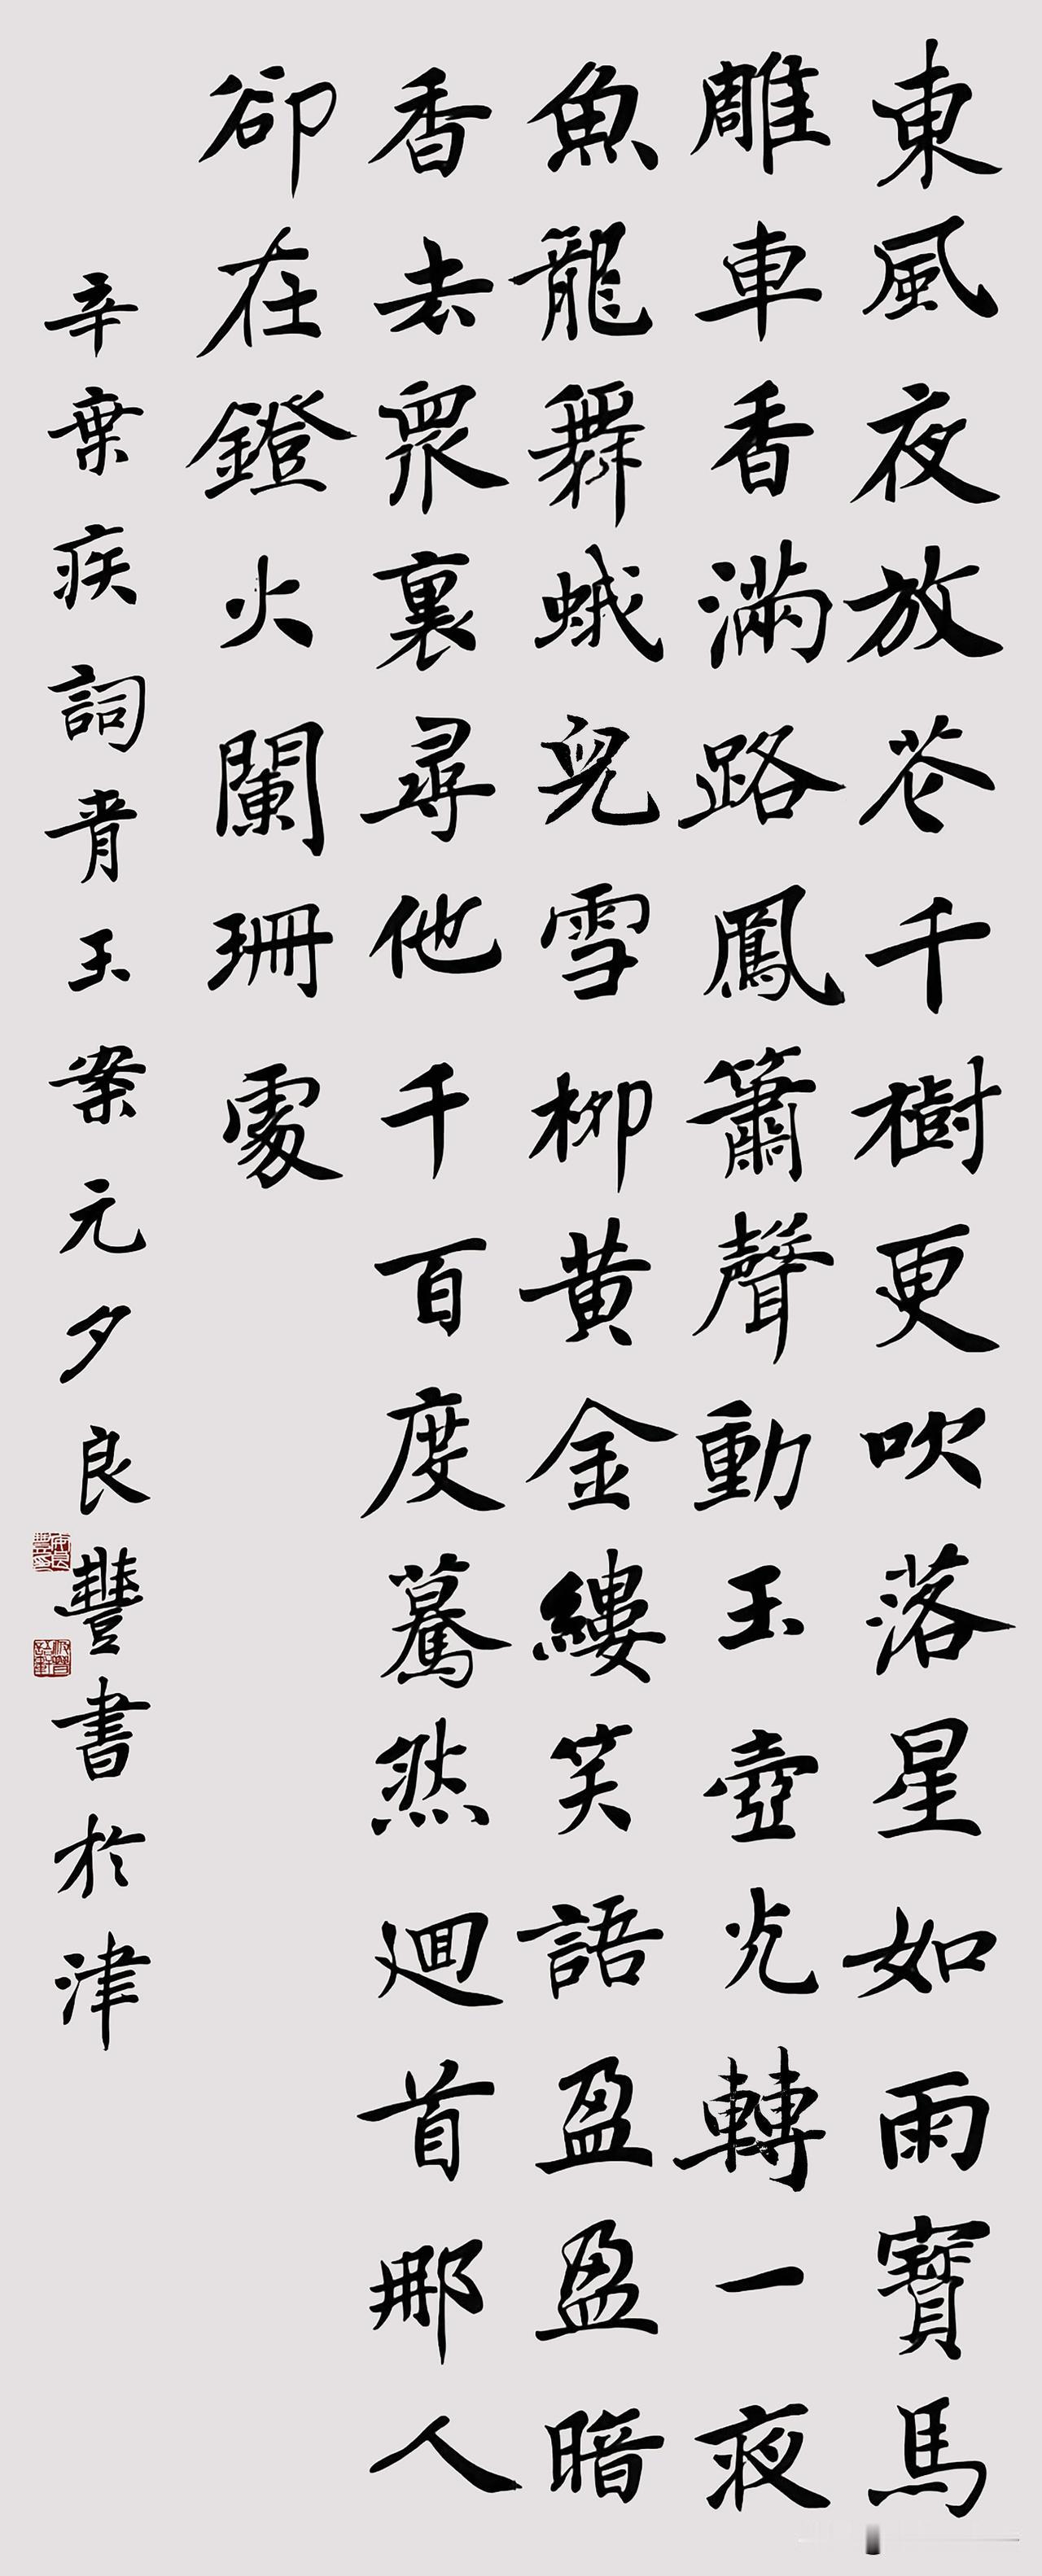 東風夜放花千樹更吹落星如雨寶馬
雕車香滿路鳳簫聲動玉壺光轉一夜
魚龍舞蛾兒雪柳黃金縷笑語盈盈暗
香去衆裏尋他千百度驀然迴首那人
卻在鐙火闌珊處
辛棄疾詞青玉案元夕良豐書於津